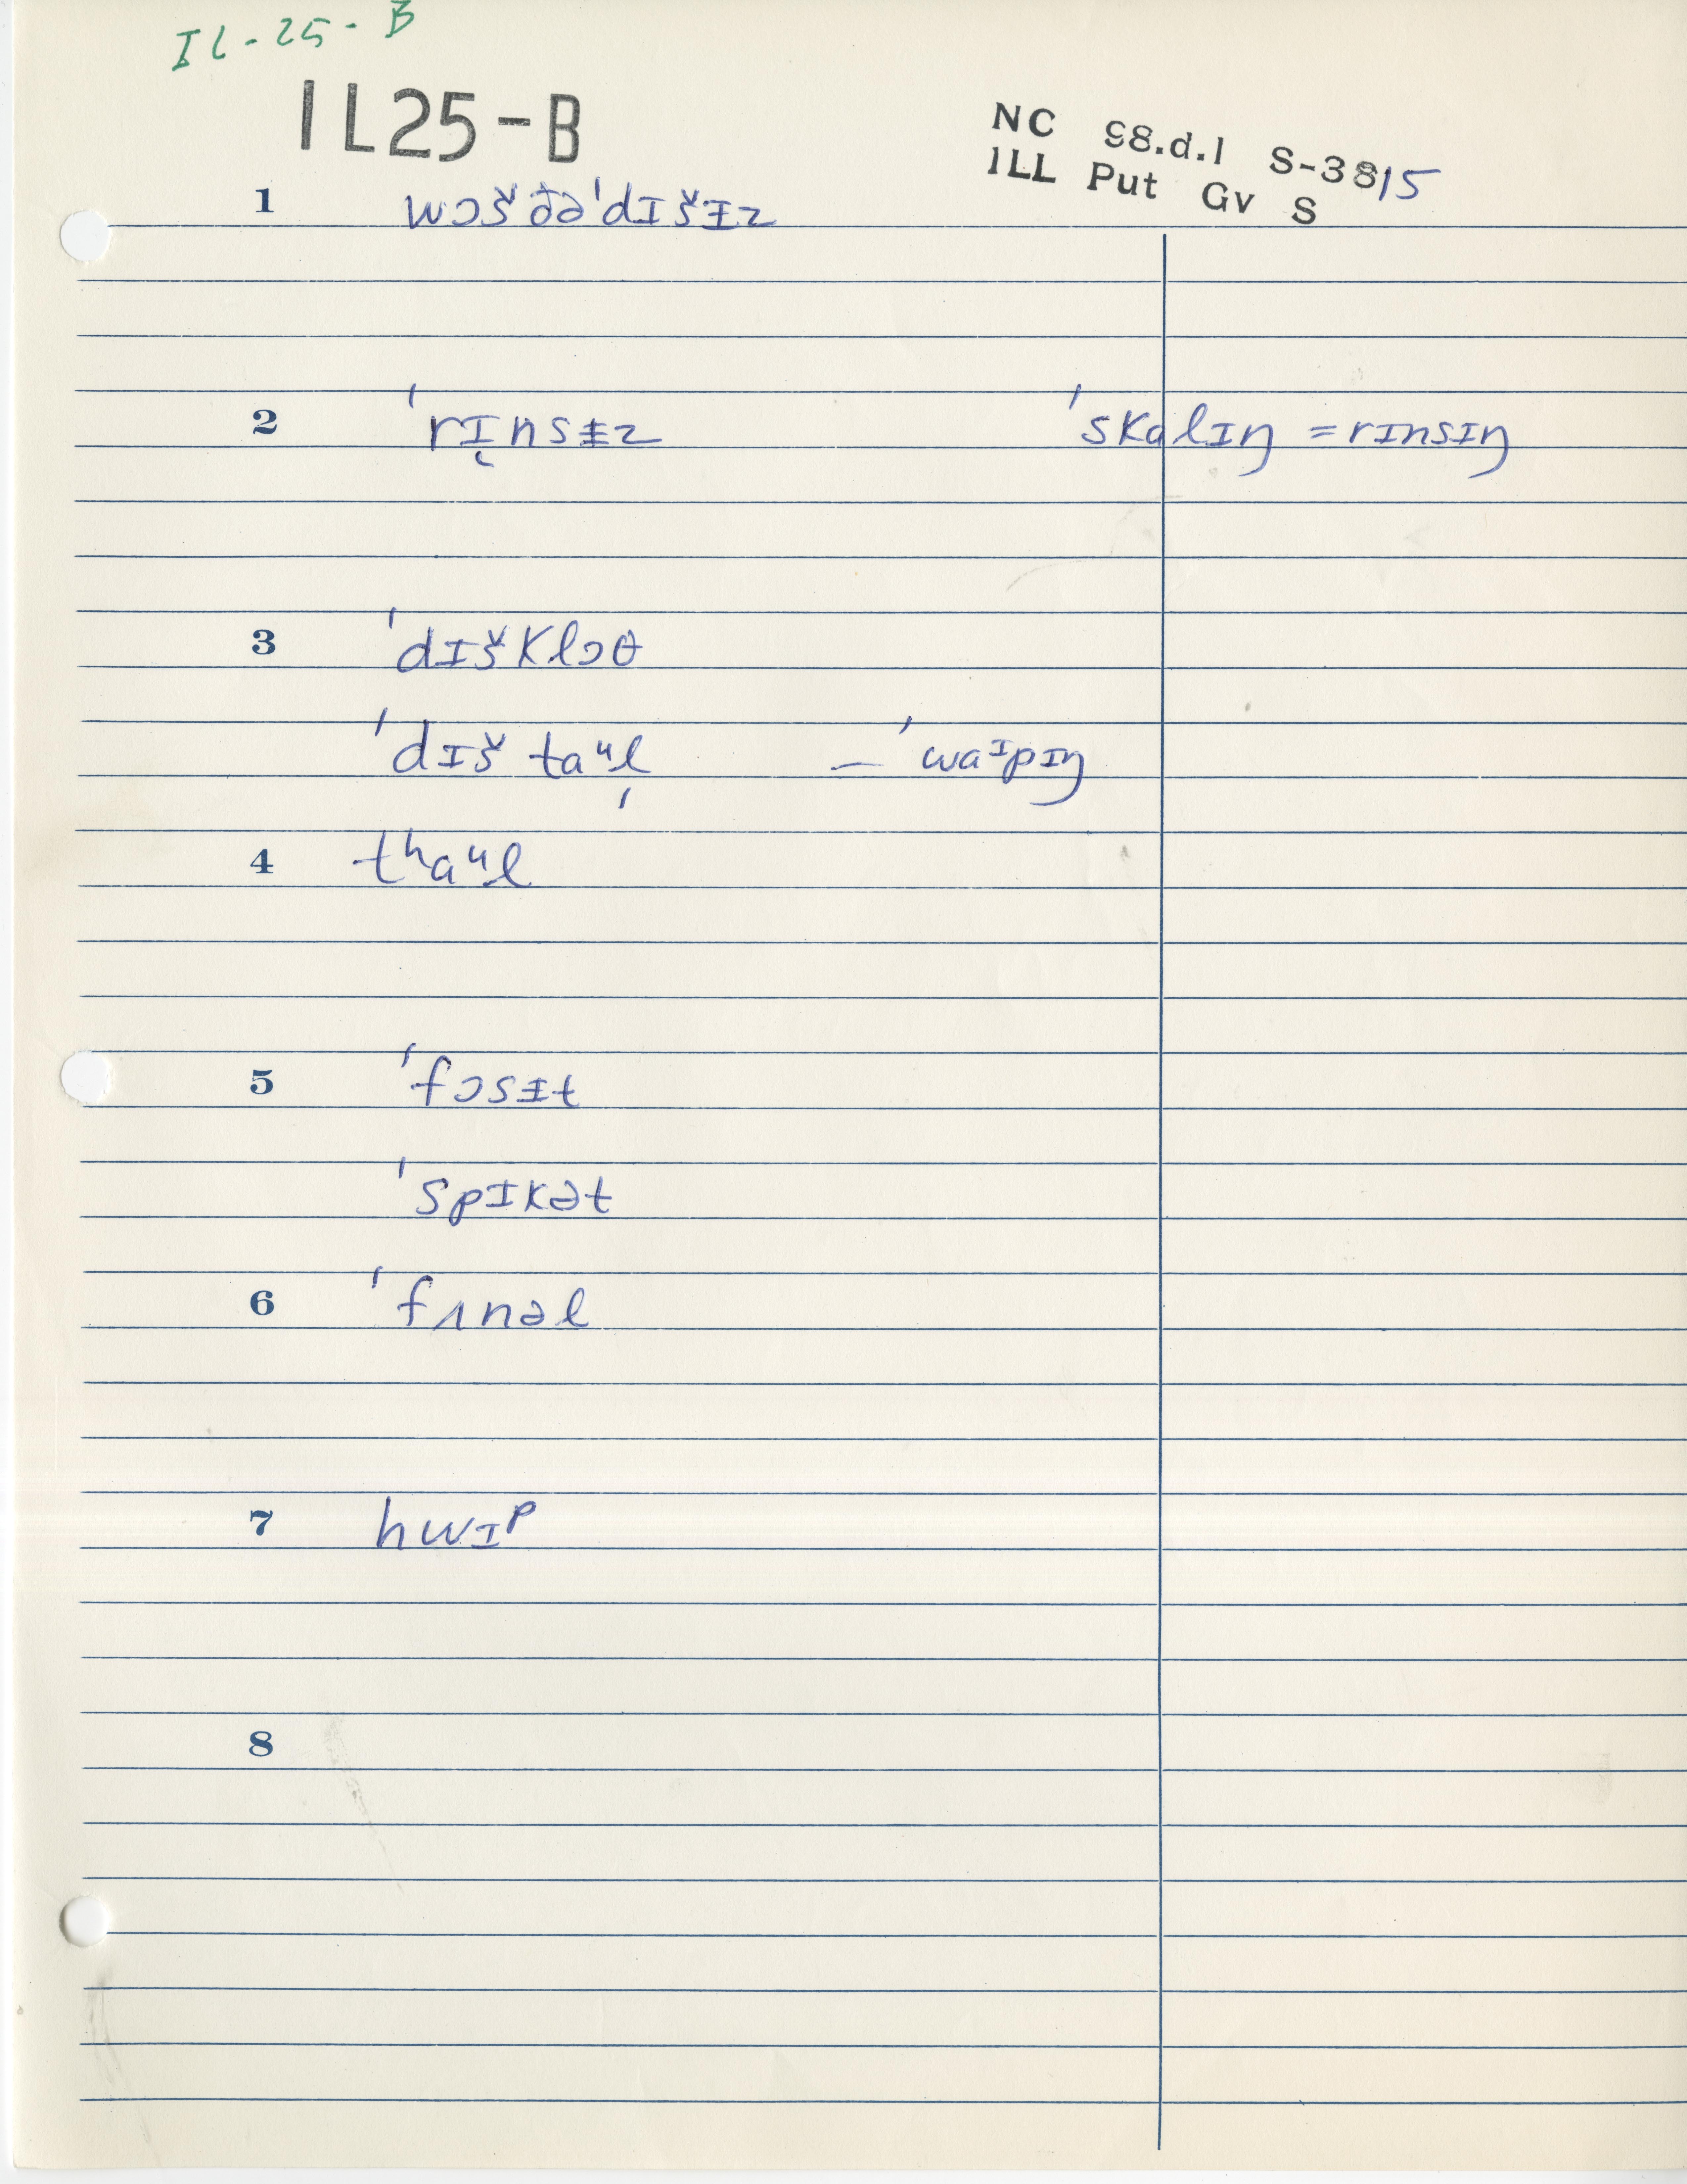 IL-25-B
IL25-B
NC 98.d.1 S-3815
ILL Put Gv S
1 wɔšðə'dɪšɨz
2 'rɪ̨nsɨz 'skɑlɪŋ = rɪnsɪŋ
3 'dɪšklɔθ
'dɪš taᵘl̩ – 'waᶦpɪŋ
4 tʰaᵘl
5 'fɔsɨt
'spɪkət
6 'fʌnəl
7 hwɪᵖ
8